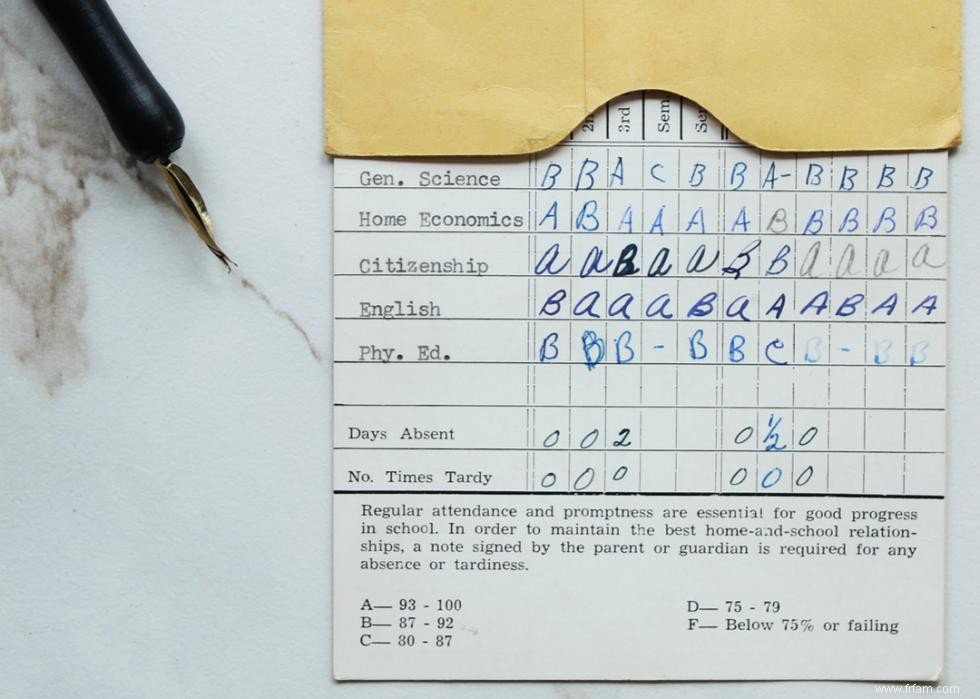 2n 3rd Sem. Sem
Gen. Science B B A C B B A- B B B B
Home Economics A B A A A A B B B B B
Citizenship a a B a a B B a a a a
English B a a a B a A A B A A
Phy. Ed. B B B - B B C B - B B
Days Absent 0 0 2 0 1/2 0
No. Times Tardy 0 0 0 0 0 0
Regular attendance and promptness are essential for good progress
in school. In order to maintain the best home-and-school relation-
ships, a note signed by the parent or guardian is required for any
absence or tardiness.
A— 93 - 100 D— 75 - 79
B— 87 - 92 F— Below 75% or failing
C— 80 - 87
www.frfam.com